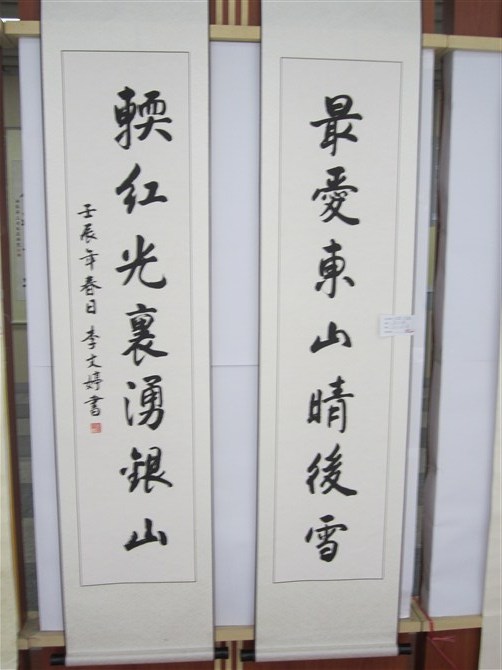 最愛東山晴後雪
輭紅光裏湧銀山
壬辰年春日李文婷書